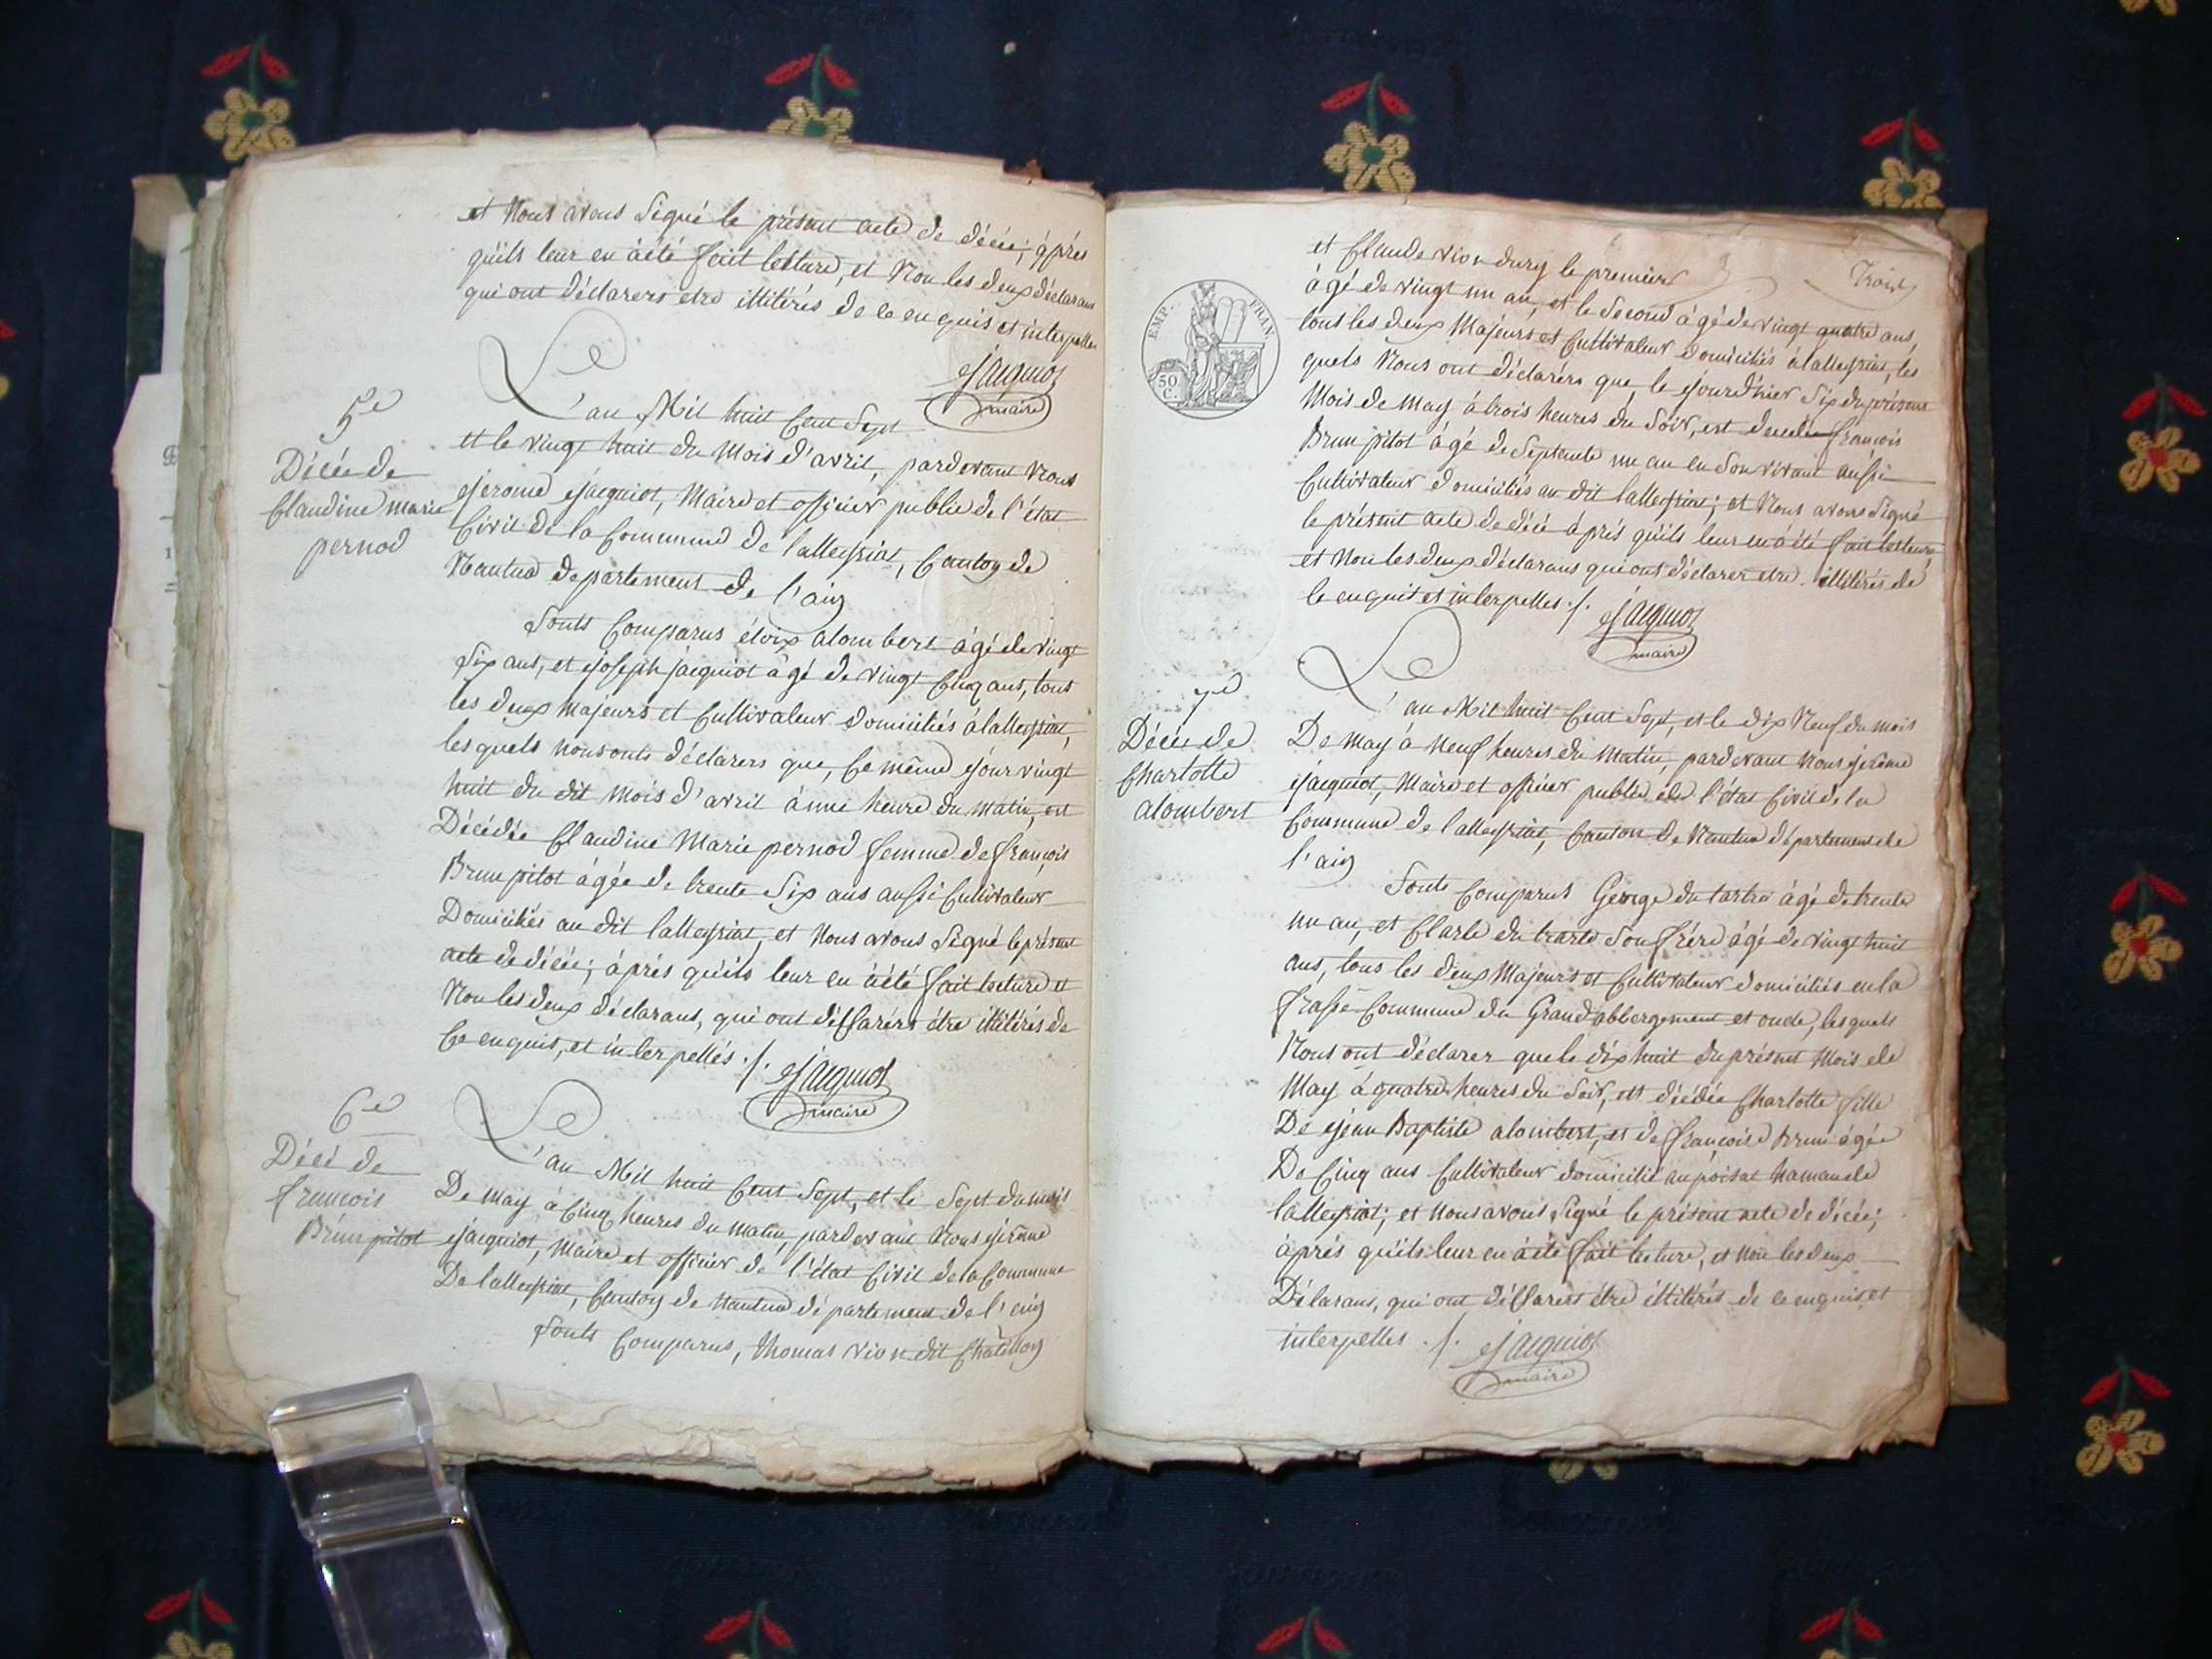 et Nous avons Signé le présent acte de décée; áprés
qu'ils leur en àété fait letture, et Non les deux déclarans
qui ont Déclarers etre illitérés de ce enquis et interpelles
Jacquiot
maire
5e
Décée de
Claudine marie
pernod
L'an Mil huit Cent Sept
et le vingt huit du Mois d'avril, pardevant Nous
Jerome Jacquiot, Maire et officier public de l'état
Civil de la Commune de lalleyriat, Canton de
Nantua departement de l'ain
Sonts Comparus éloix alombert ágé de vingt
Six ans, et Joseph Jacquiot ágé de vingt Cinq ans, tous
les deux Majeurs et Cultivateur domiciliés à lalleyriat,
lesquels nous onts déclarers que, Ce même Jour vingt
huit du dit Mois d'avril à une heure du matin, est
Décédée Claudine Marie pernod femme de françois
Brun pitot ágée de trente Six ans aussi Cultivateur
Domiciliés au dit lalleyriat, et Nous avons Signé le présent
acte de décée; áprés qu'ils leur en àété fait lecture et
Non les deux déclarans, qui ont déclarérs être illitérés de
Ce enquis, et interpellés ./. Jacquiot
maire
6e
Décé de
françois
Brun pitot
L'an Mil huit Cent Sept, et le Sept du mois
De may à Cinq heures du matin, pardevant Nous Jérôme
Jacquiot, Maire et officier de l'état Civil de la Commune
De lalleyriat, Canton de Nantua département de l'ain
Sonts Comparus, thomas vion dit Chatillon
Trois
et Claude vion dury le premier
ágé de vingt un an, et le Second ágé de vingt quatre ans,
tous les deux Majeurs et Cultivateur domiciliés à lalleyriat, les
quels Nous ont déclarérs que le Jourd'hier Six du présent
Mois de May à trois heures du Soir, est décédé françois
Brun pitot ágé de Septante un an en Son vivant aussi
Cultivateur domiciliés au dit lalleyriat; et Nous avons Signé
le présent acte de décé áprés qu'ils leur en àété fait letture
et Non les deux déclarans qui ont déclarer etre illitérés de
le enquis et interpelles ./. Jacquiot
maire
EMP. FRAN.
50 C.
7e
Décée de
Charlotte
alombert
L'an Mil huit Cent Sept, et le dix Neuf du mois
De May à Neuf heures du Matin, pardevant Nous Jérôme
Jacquiot, Maire et officier public de l'état Civil de la
Commune de lalleyriat, Canton de Nantua département de
l'ain
Sonts Comparus George du tartre ágé de trente
un an, et Clarle du trarte Son frére ágé de vingt huit
ans, tous les deux Majeurs et Cultivateur domiciliés en la
frasse Commune du Grand abbergement et oncle, lesquels
Nous ont déclarer que le dix huit du présent Mois de
May à quatre heures du Soir, est décédée Charlotte fille
De Jean Baptiste alombert, et de françoise brun ágée
De Cinq ans Cultivateur domicilié au poisat hamau de
lalleyriat; et Nous avons Signé le présent acte de décée;
áprés qu'ils leur en àété fait lecture, et Non les deux
Délarans, qui ont déclarérs être illitérés de ce enquis, et
interpelles ./. Jacquiot
maire